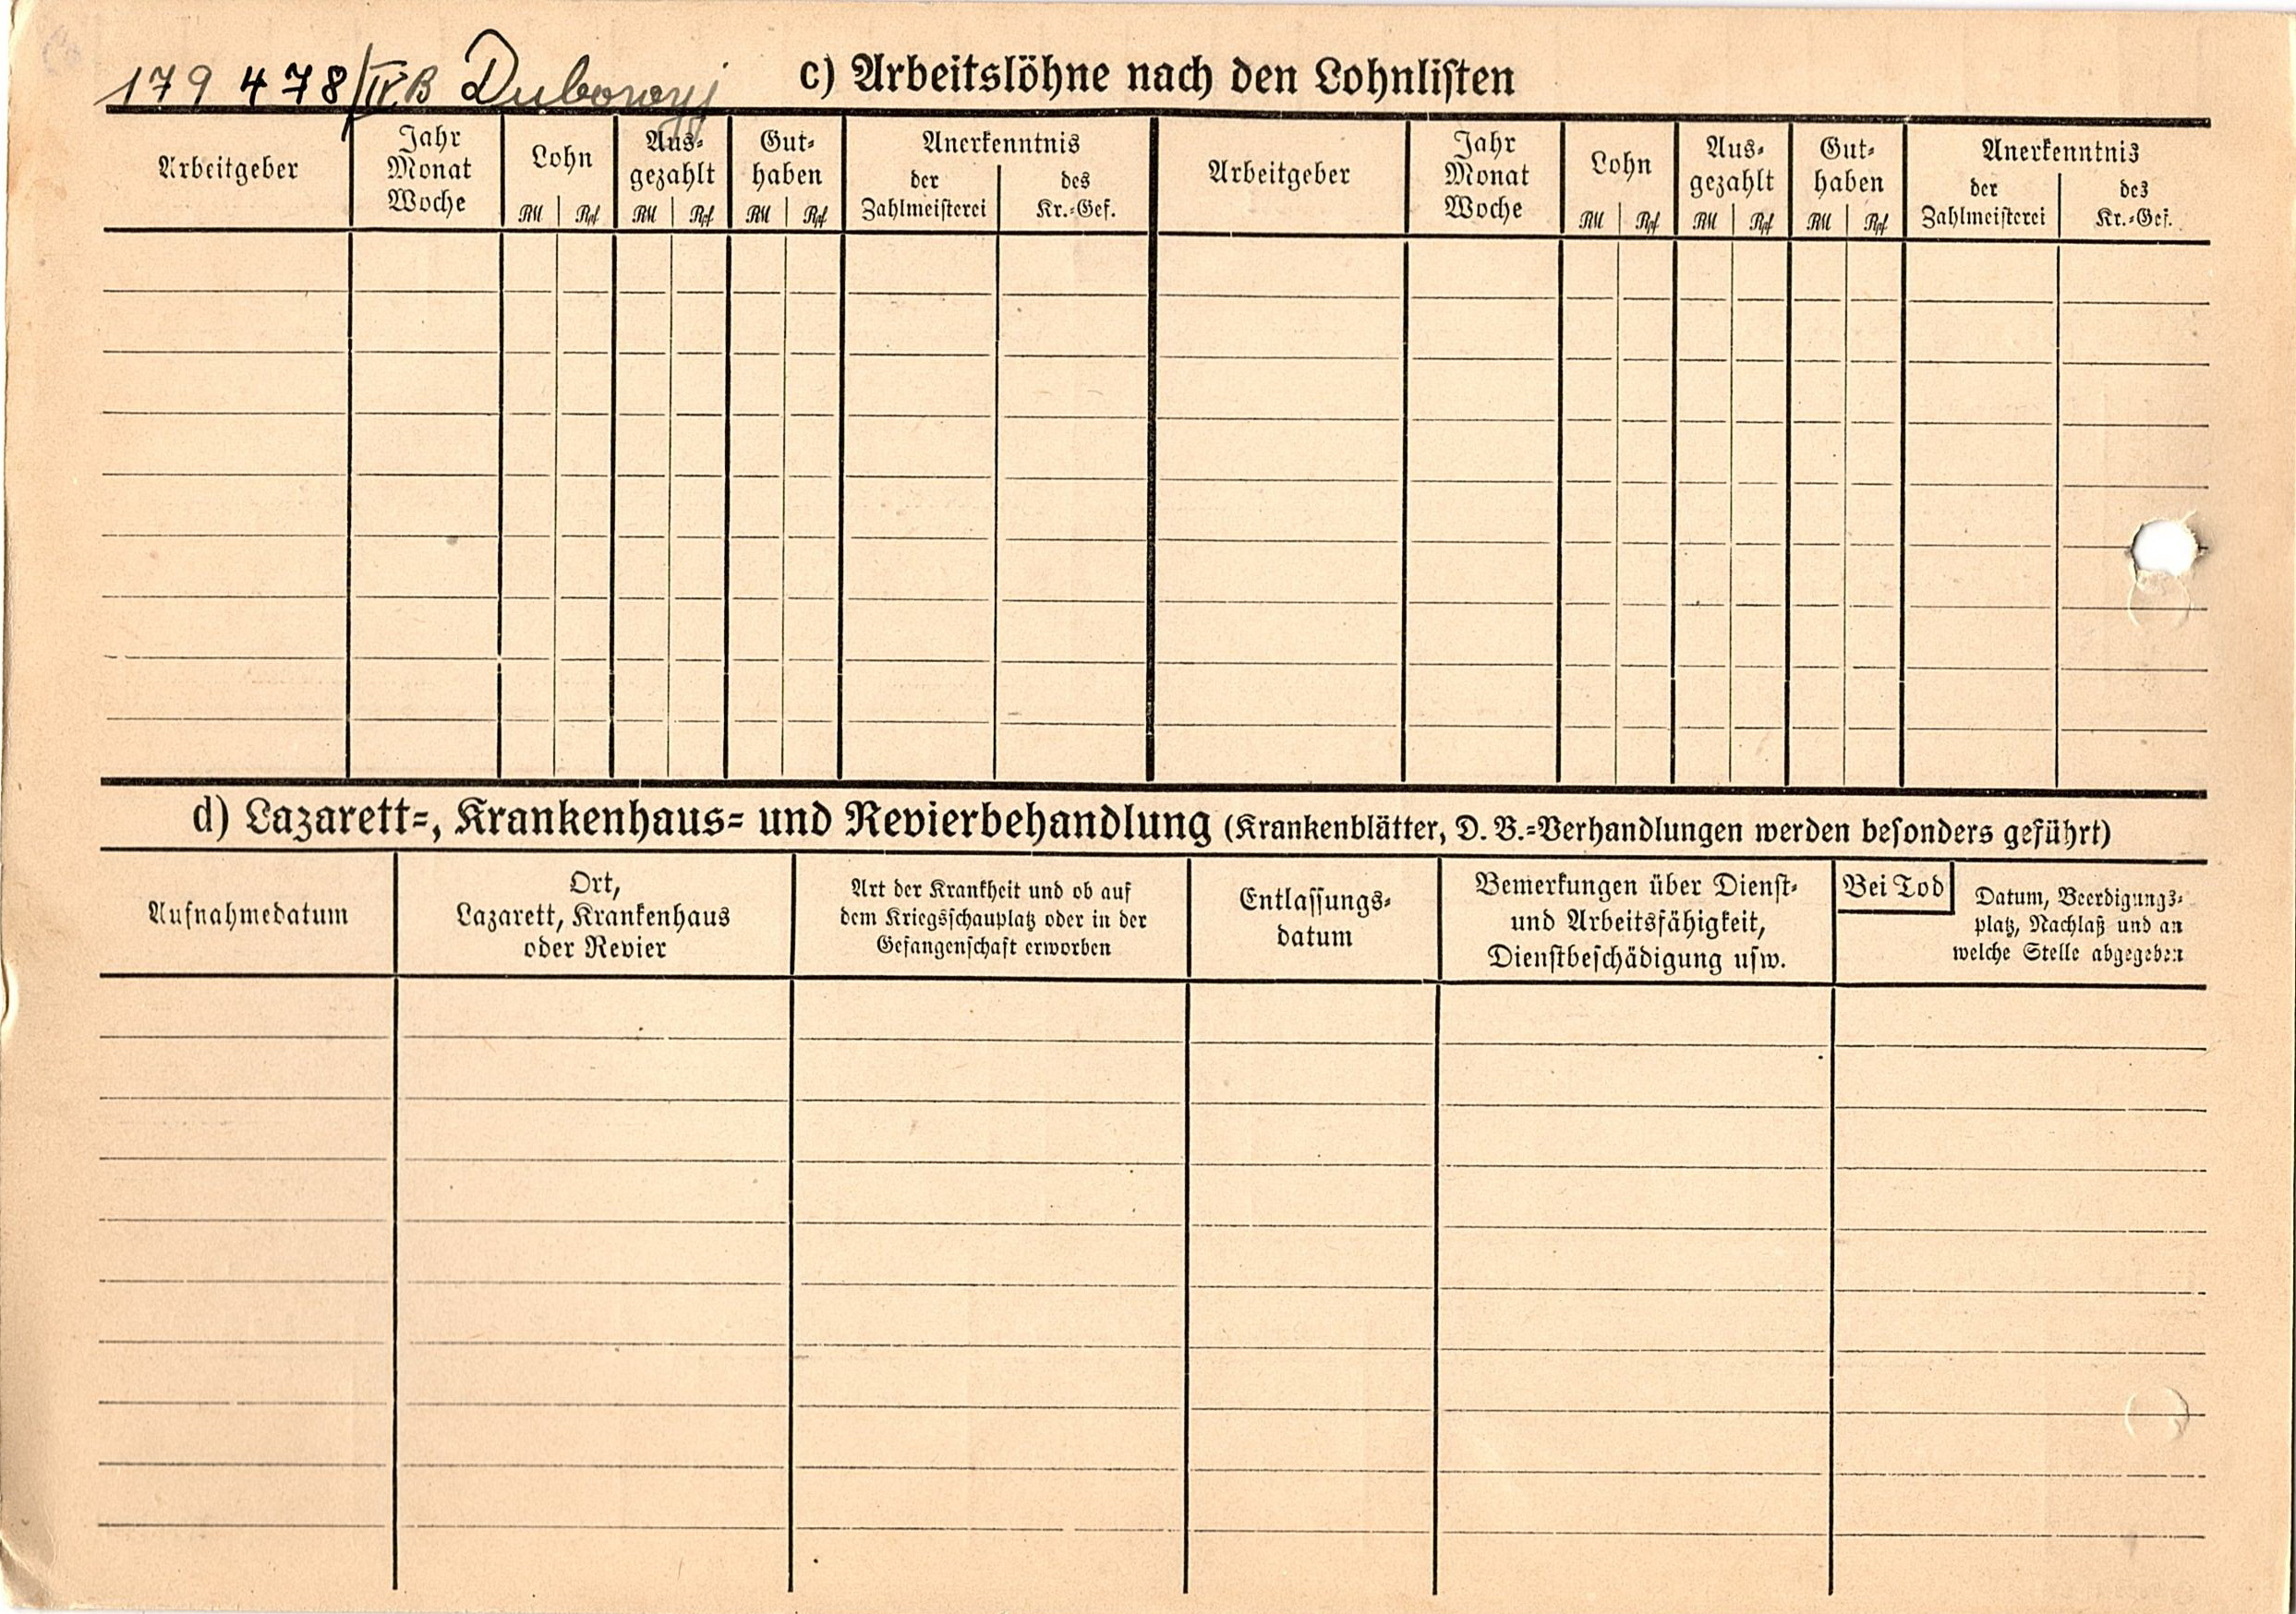 179 478/IVB Dubowyj
c) Arbeitslöhne nach den Lohnlisten
Arbeitgeber
Jahr
Monat
Woche
Lohn
RM Rpf
Aus-
gezahlt
RM Rpf
Gut-
haben
RM Rpf
Anerkenntnis
der
Zahlmeisterei
des
Kr.-Gef.
Arbeitgeber
Jahr
Monat
Woche
Lohn
RM Rpf
Aus-
gezahlt
RM Rpf
Gut-
haben
RM Rpf
Anerkenntnis
der
Zahlmeisterei
des
Kr.-Gef.
d) Lazarett-, Krankenhaus- und Revierbehandlung (Krankenblätter, D. B.-Verhandlungen werden besonders geführt)
Aufnahmedatum
Ort,
Lazarett, Krankenhaus
oder Revier
Art der Krankheit und ob auf
dem Kriegsschauplatz oder in der
Gefangenschaft erworben
Entlassungs-
datum
Bemerkungen über Dienst-
und Arbeitsfähigkeit,
Dienstbeschädigung usw.
Bei Tod
Datum, Beerdigungs-
platz, Nachlaß und an
welche Stelle abgegeben